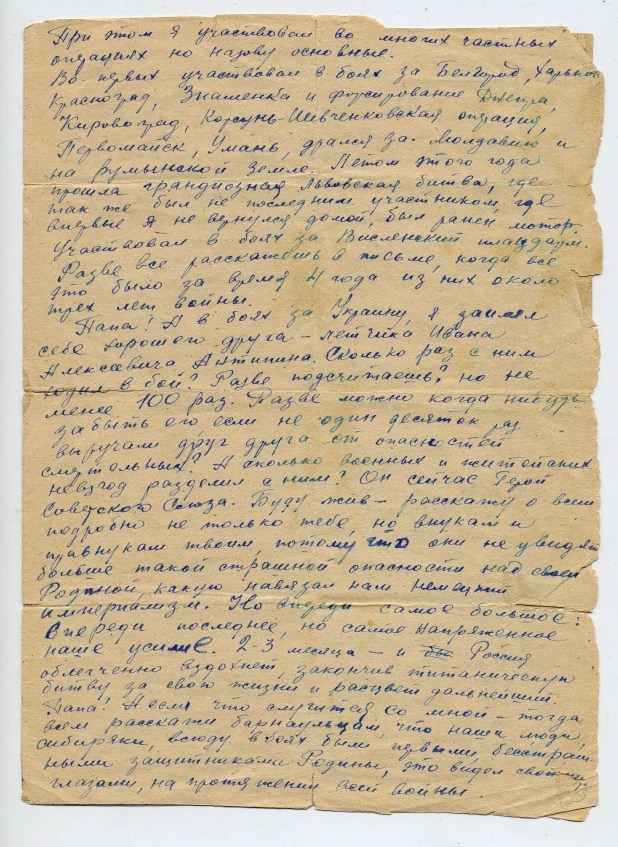 При этом я участвовал во многих частных
опрациях но назову основные.
Во-первых участвовал в боях за Белгород, Харьков,
Красноград, Знаменка и форсирование Днепра,
Кировоград, Корсунь-Шевченковская опрация,
Первомайск, Умань, дрался за Молдавию и
на румынской земле. Летом этого года
прошла грандиозная Львовская битва, где
так же был не последним участником, где
впервые я не вернулся домой, был ранен мотор.
Участвовал в боях за Висленский плацдарм.
Разве все расскажешь в письме, когда все
это было за время 4 года из них около
трех лет войны.
Папа! А в боях за Украину, я заимел
себе хорошего друга – летчика Ивана
Алексевича Антипина. Сколько раз с ним
ходил в бой? Разве подсчитаешь? но не
менее 100 раз. Разве можно когда нибудь
забыть его если не один десяток раз
выручали друг друга от опасностей
смертельных? А сколько военных и житейских
невзгод разделил с ним? Он сейчас Герой
Советского Союза. Буду жив – расскажу о всем
подробно не только тебе, но внукам и
правнукам твоим, потому что они не увидят
больше такой страшной опасности над своей
Родиной, какую навязал нам немецкий
империализм. Но впереди самое большое:
Впереди последнее, но самое напряженное
наше усилие. 2-3 месяца – и Россия
облегченно вздохнет, закончив титаническую
битву за свою жизнь и расцвет дальнейший.
Папа! А если что случится со мной – тогда
всем расскажи барнаульцам, что наши люди,
сибиряки, всюду в боях были первыми бесстраш-
ными защитниками Родины, это видел своими
глазами, на протяжении всей войны.